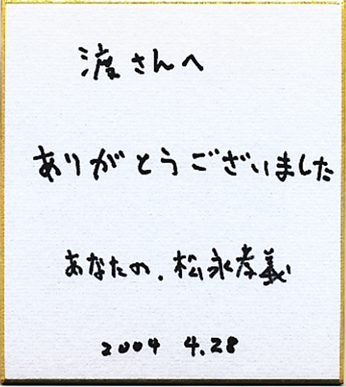 渡さんへ
ありがとうございました
あなたの、松永孝義
2004 4.28